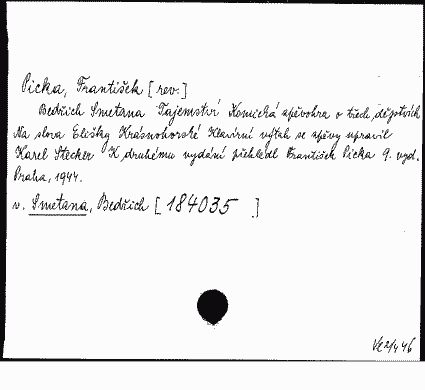 Picka, František [rev.]
Bedřich Smetana Tajemství Komická zpěvohra o třech dějstvích
Na slova Elišky Krásnohorské Klavírní výtah se zpěvy upravil
Karel Stecker K druhému vydání přehlédl František Picka 9. vyd.
Praha, 1944.
v. Smetana, Bedřich [184035 ]